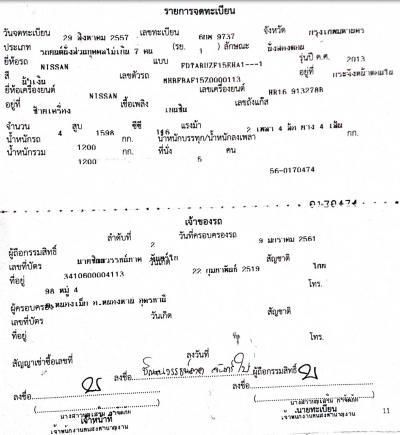 รายการจดทะเบียน
วันจดทะเบียน 29 สิงหาคม 2557 เลขทะเบียน 6กษ 9737 จังหวัด กรุงเทพมหานคร
ประเภท รถยนต์นั่งส่วนบุคคลไม่เกิน 7 คน (รย. 1) ลักษณะ นั่งสองตอน
ยี่ห้อรถ NISSAN แบบ รุ่นปี ค.ศ. 2013
สี น้ำเงิน เลขตัวรถ อยู่ที่
ยี่ห้อเครื่องยนต์ NISSAN เลขเครื่องยนต์ HR16 913278B
อยู่ที่ ซ้ายเครื่อง เชื้อเพลิง เบนซิน เลขถังแก๊ส
จำนวน 4 สูบ 1598 ซีซี 116 แรงม้า 2 เพลา 4 ล้อ ยาง 4 เส้น
น้ำหนักรถ 1200 กก. น้ำหนักบรรทุก/น้ำหนักลงเพลา กก.
น้ำหนักรวม 1200 กก. ที่นั่ง 5 คน
56-0170474
0170474
เจ้าของรถ
ลำดับที่ 2 วันที่ครอบครองรถ 9 มกราคม 2561
ผู้ถือกรรมสิทธิ์
เลขที่บัตร 3410600004113 วันเกิด 22 กุมภาพันธ์ 2519 สัญชาติ ไทย
ที่อยู่ 98 หมู่ 4 โทร.
อุดรธานี
ผู้ครอบครอง
เลขที่บัตร วันเกิด สัญชาติ
ที่อยู่ โทร.
สัญญาเช่าซื้อเลขที่ ลงวันที่
ลงชื่อ ผู้ถือกรรมสิทธิ์
ลงชื่อ ลงชื่อ
เจ้าหน้าที่ นายทะเบียน
เจ้าพนักงานขนส่งชำนาญงาน เจ้าพนักงานขนส่งชำนาญงาน
11